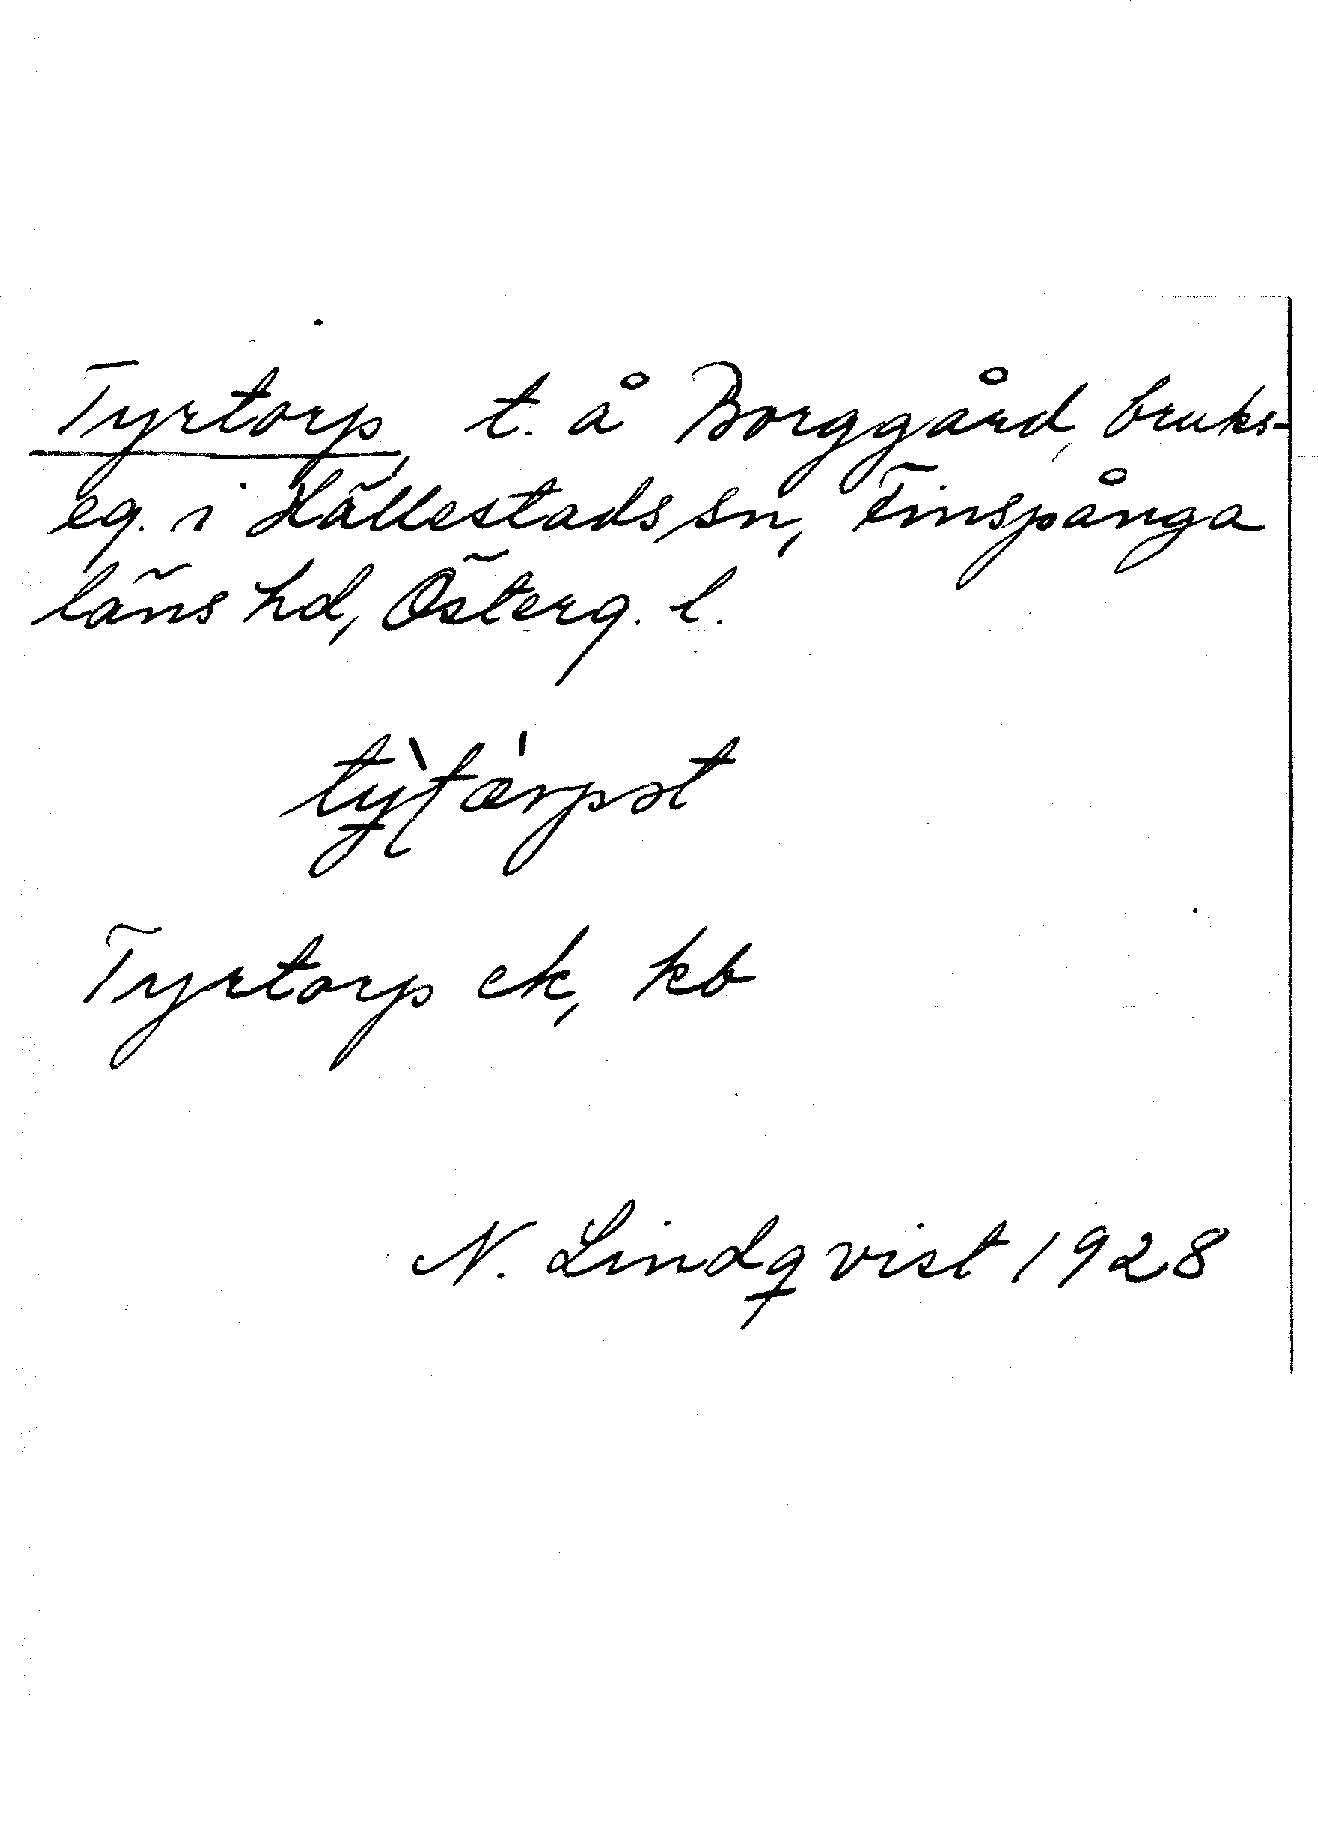 Tyrtorp, t. å Borggård, bruks-
eg. i Hällestads sn, Finspånga
läns hd, Österg. l.
Tyrtorp ek, kb
N. Lindqvist 1928